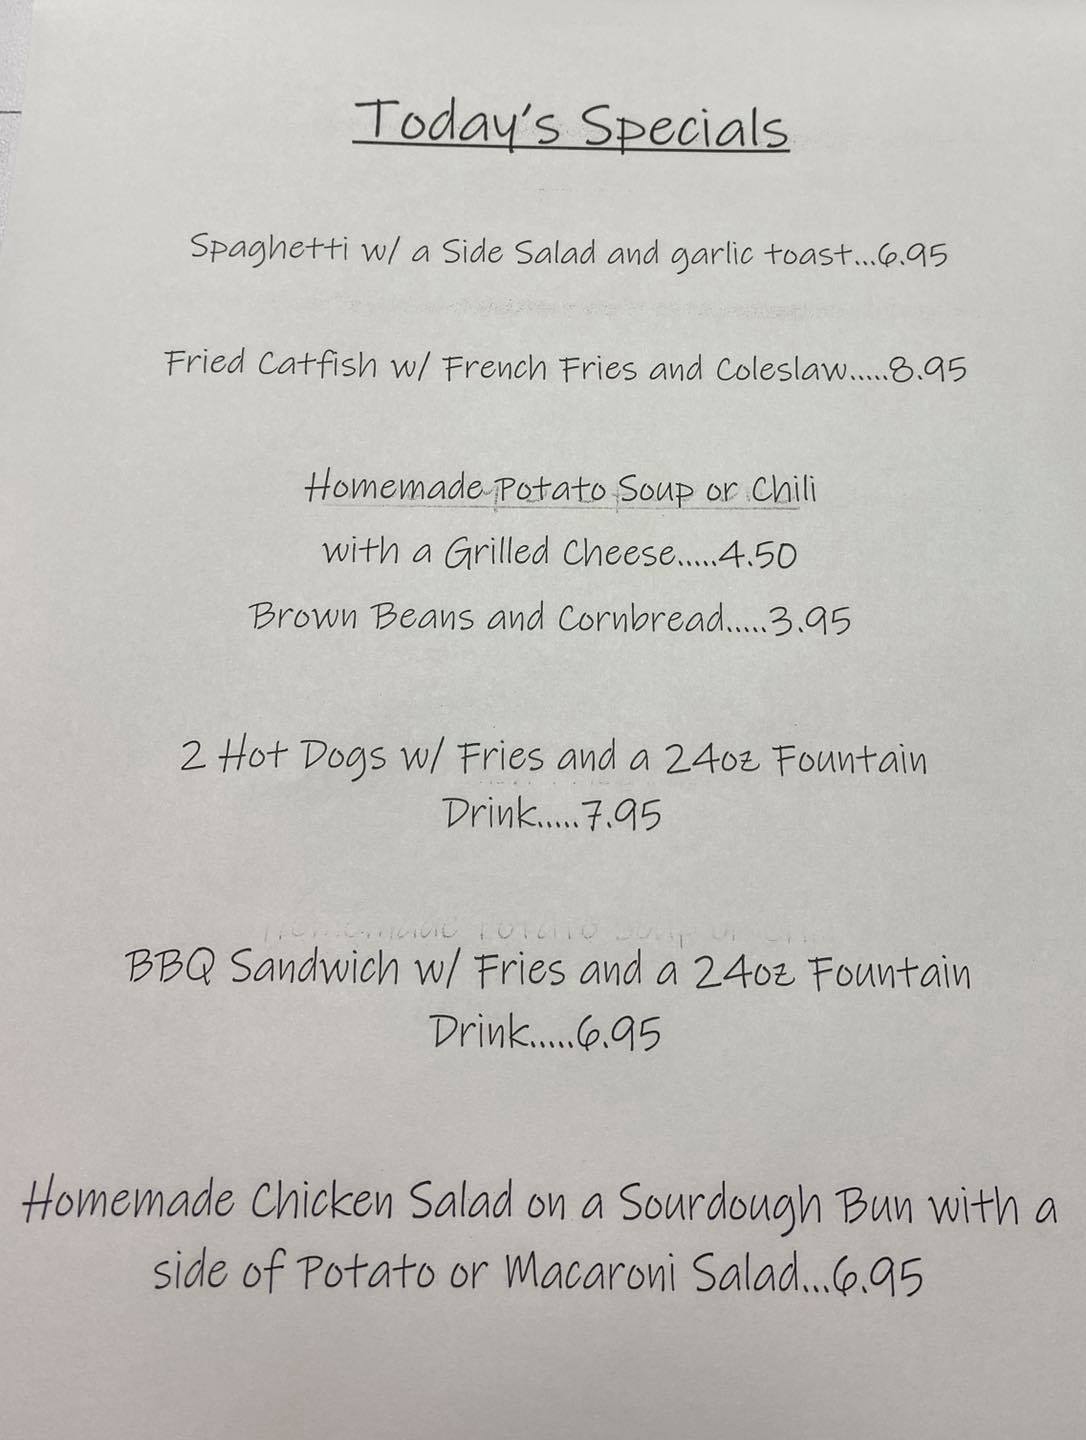 Today's Specials
Spaghetti w/ a Side Salad and garlic toast...6.95
Fried Catfish w/ French Fries and Coleslaw.....8.95
Homemade Potato Soup or Chili
with a Grilled Cheese.....4.50
Brown Beans and Cornbread.....3.95
2 Hot Dogs w/ Fries and a 24oz Fountain
Drink.....7.95
Homemade Potato Soup or Chili
BBQ Sandwich w/ Fries and a 24oz Fountain
Drink.....6.95
Homemade Chicken Salad on a Sourdough Bun with a
side of Potato or Macaroni Salad...6.95